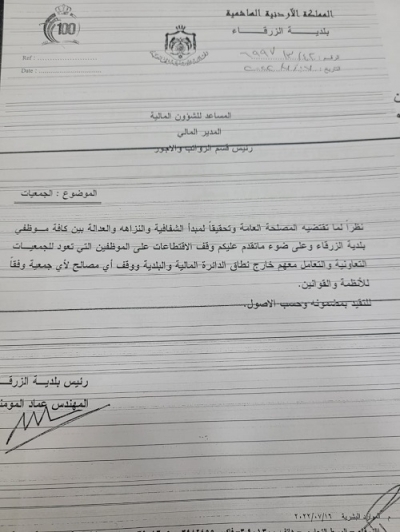 المملكة الأردنية الهاشمية
بلدية الزرقاء
100
Ref :
Date :
المساعد للشؤون المالية
المدير المالي
رئيس قسم الرواتب والاجور
الموضوع : الجمعيات
نظراً لما تقتضيه المصلحة العامة وتحقيقاً لمبدأ الشفافية والنزاهه والعدالة بين كافة موظفي
بلدية الزرقاء وعلى ضوء ماتقدم عليكم وقف الاقتطاعات على الموظفين التي تعود للجمعيات
التعاونية والتعامل معهم خارج نطاق الدائرة المالية والبلدية ووقف أي مصالح لأي جمعية وفقاً
للأنظمة والقوانين.
للتقيد بمضمونه وحسب الاصول.
رئيس بلدية الزرق
المهندس عماد المومن
الموارد البشرية ٢٠٢٢/٠٧/١٦